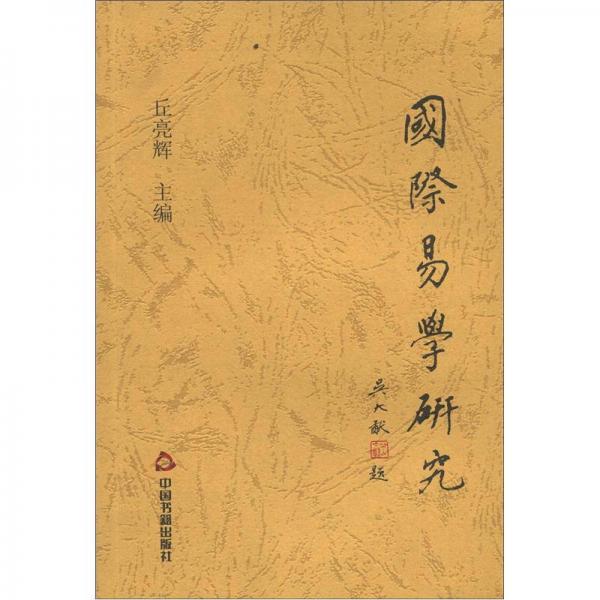 國際易學研究
吴大猷 题
丘亮辉 主编
中国书籍出版社